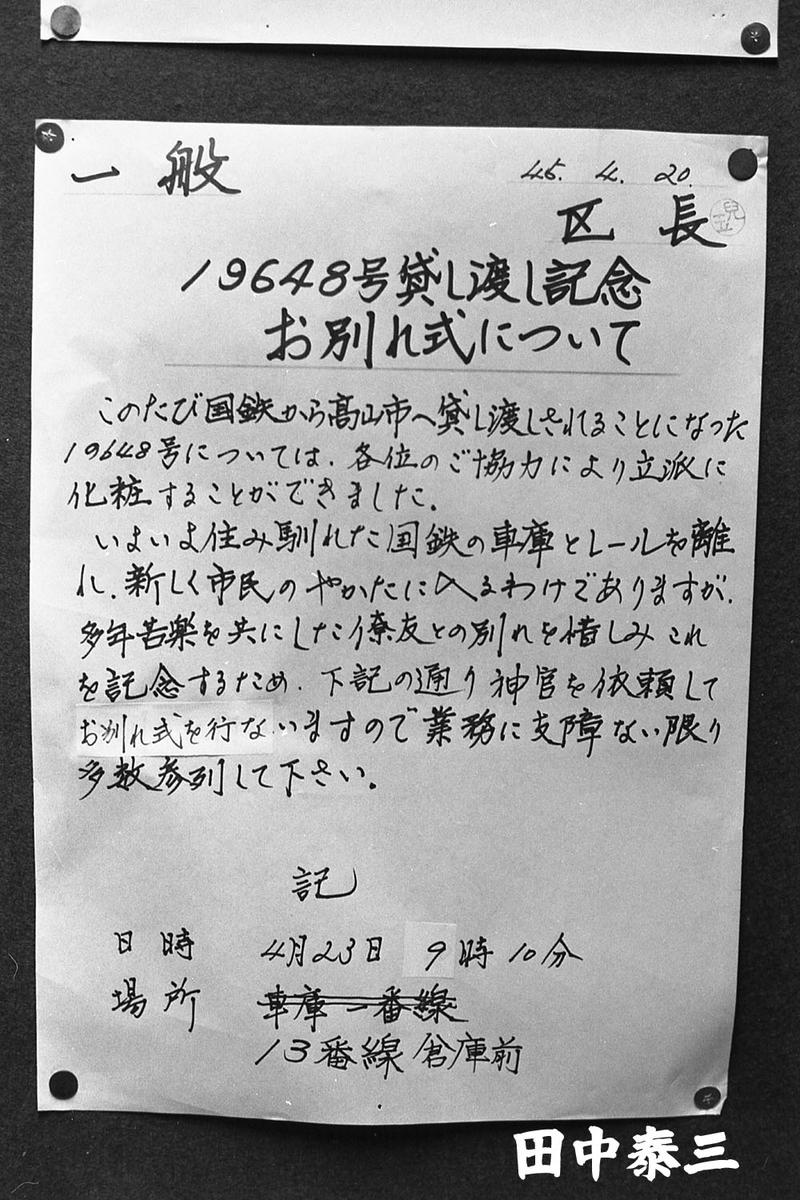 一般
45. 4. 20.
区長
19648号貸し渡し記念
お別れ式について
このたび国鉄から高山市へ貸し渡しされることになった
19648号については、各位のご協力により立派に
化粧することができました。
いよいよ住み馴れた国鉄の車庫とレールを離
れ、新しく市民のやかたに入るわけでありますが、
多年苦楽を共にした僚友との別れを惜しみこれ
を記念するため、下記の通り神官を依頼して
お別れ式を行ないますので業務に支障ない限り
多数参列して下さい。
記
日時 4月23日 9時10分
場所 車庫一番線
13番線倉庫前
田中泰三